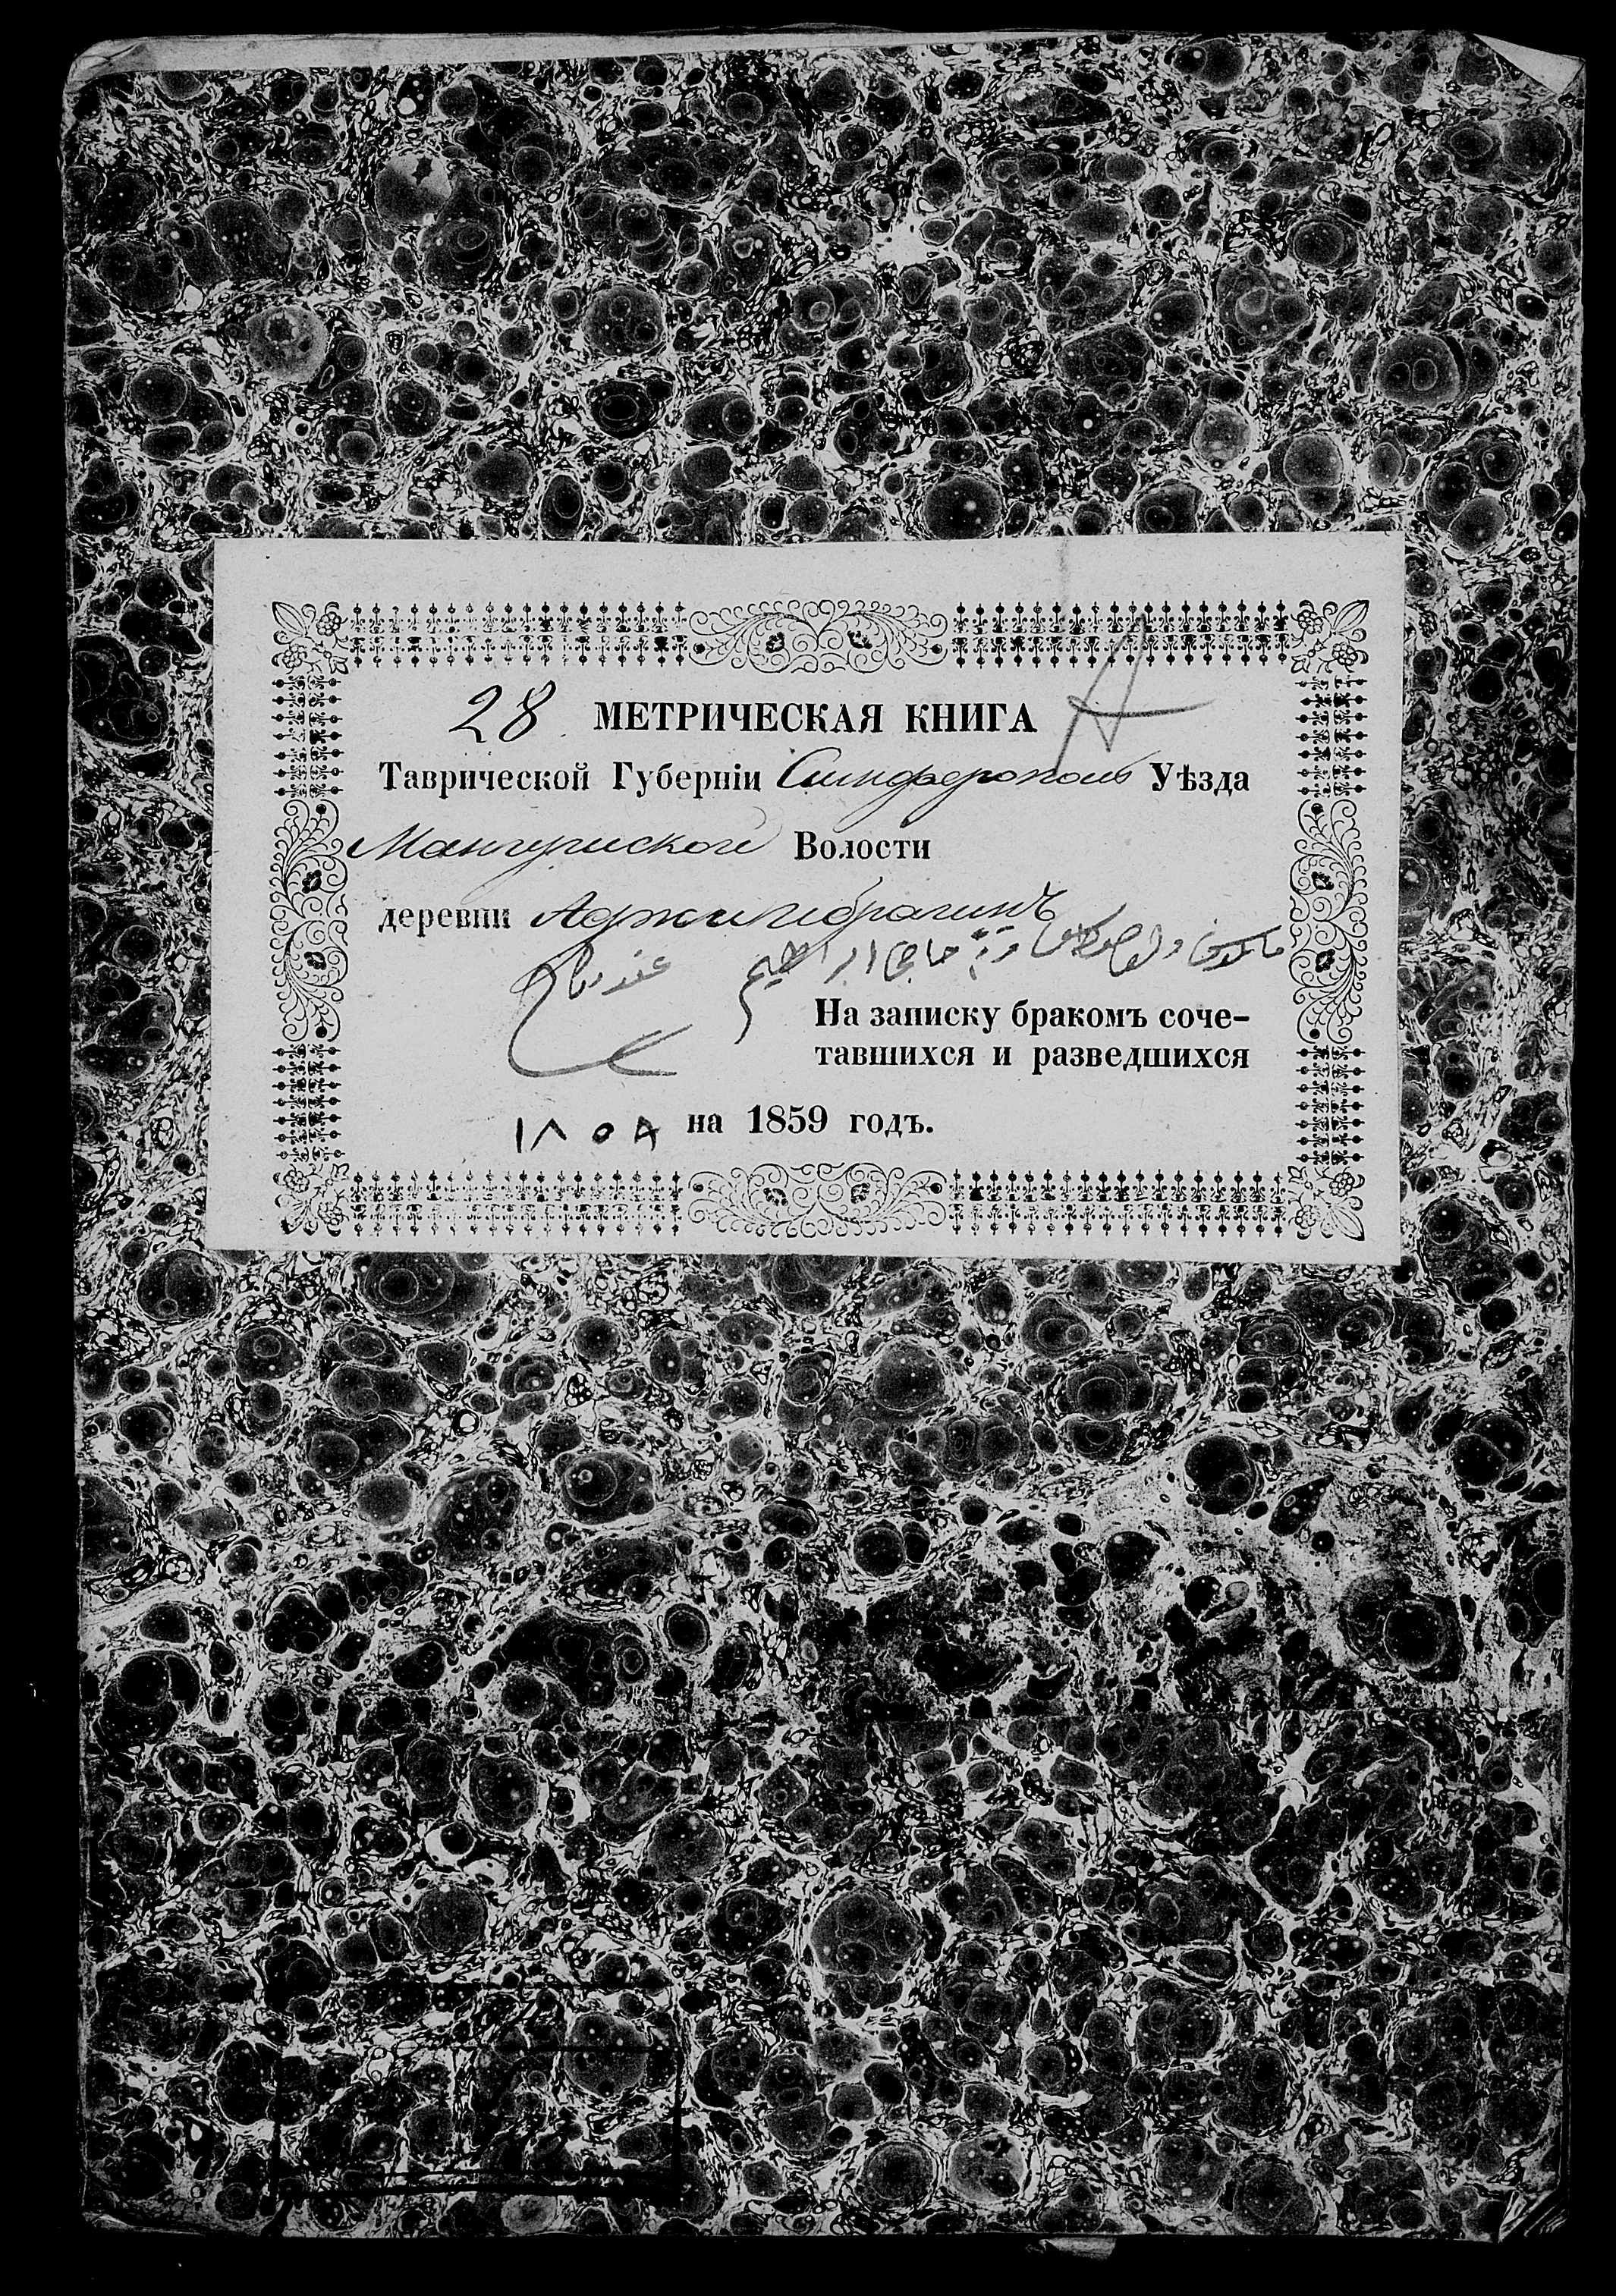 28 МЕТРИЧЕСКАЯ КНИГА А
Таврической Губернiи Симферополь Уѣзда
Мангушской Волости
деревни Аджи Ибрагимъ
قريۀ حاجى ابراهيم
На записку бракомъ соче-
тавшихся и разведшихся
١٨٥٩ на 1859 годъ.